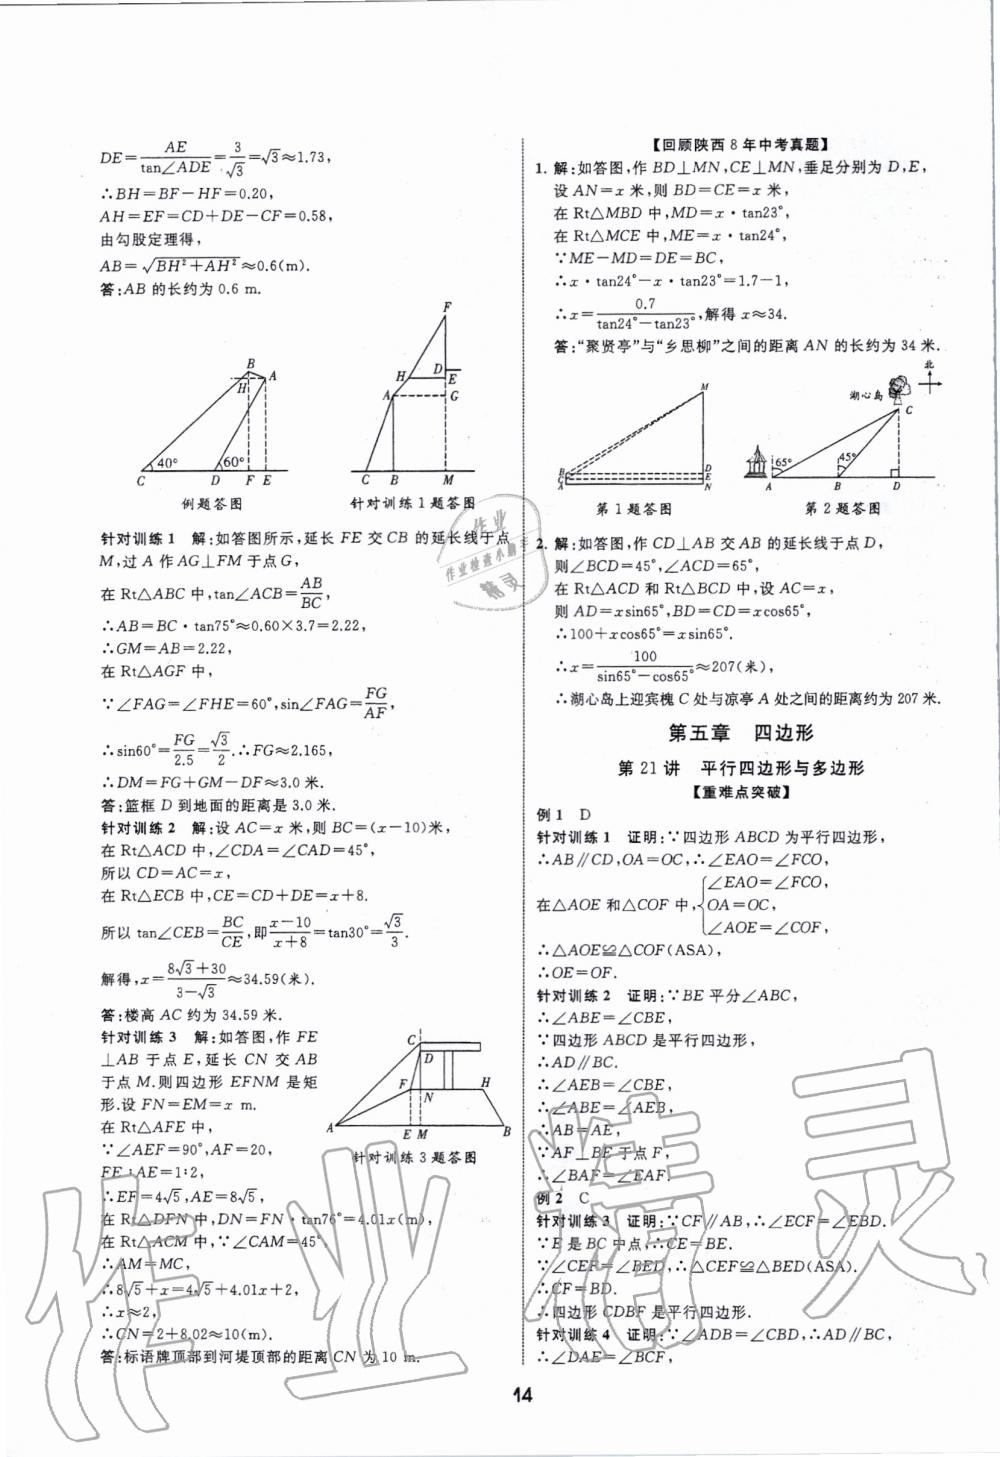 DE=AE/tan∠ADE=3/√3=√3≈1.73,
∴BH=BF-HF=0.20,
AH=EF=CD+DE-CF=0.58,
由勾股定理得,
AB=√(BH²+AH²)≈0.6(m).
答:AB 的长约为 0.6 m.
B
A
H
40°
60°
C
D
F
E
例题答图
F
D
H
E
A
G
C
B
M
针对训练 1 题答图
针对训练 1 解:如答图所示,延长 FE 交 CB 的延长线于点
M,过 A 作 AG⊥FM 于点 G,
在 Rt△ABC 中,tan∠ACB=AB/BC,
∴AB=BC·tan75°≈0.60×3.7=2.22,
∴GM=AB=2.22,
在 Rt△AGF 中,
∵∠FAG=∠FHE=60°,sin∠FAG=FG/AF,
∴sin60°=FG/2.5=√3/2.∴FG≈2.165,
∴DM=FG+GM-DF≈3.0 米.
答:篮框 D 到地面的距离是 3.0 米.
针对训练 2 解:设 AC=x 米,则 BC=(x-10)米,
在 Rt△ACD 中,∠CDA=∠CAD=45°,
所以 CD=AC=x,
在 Rt△ECB 中,CE=CD+DE=x+8.
所以 tan∠CEB=BC/CE,即(x-10)/(x+8)=tan30°=√3/3.
解得,x=(8√3+30)/(3-√3)≈34.59(米).
答:楼高 AC 约为 34.59 米.
针对训练 3 解:如答图,作 FE
⊥AB 于点 E,延长 CN 交 AB
于点 M.则四边形 EFNM 是矩
形.设 FN=EM=x m.
在 Rt△AFE 中,
∵∠AEF=90°,AF=20,
FE∶AE=1∶2,
∴EF=4√5,AE=8√5,
在 Rt△DFN 中,DN=FN·tan76°=4.01x(m),
在 Rt△ACM 中,∵∠CAM=45°
∴AM=MC,
∴8√5+x=4√5+4.01x+2,
∴x≈2,
∴CN=2+8.02≈10(m).
答:标语牌顶部到河堤顶部的距离 CN 为 10 m.
C
D
F
N
H
A
E
M
B
针对训练 3 题答图
【回顾陕西 8 年中考真题】
1. 解:如答图,作 BD⊥MN,CE⊥MN,垂足分别为 D,E,
设 AN=x 米,则 BD=CE=x 米,
在 Rt△MBD 中,MD=x·tan23°,
在 Rt△MCE 中,ME=x·tan24°,
∵ME-MD=DE=BC,
∴x·tan24°-x·tan23°=1.7-1,
∴x=0.7/(tan24°-tan23°),解得 x≈34.
答:“聚贤亭”与“乡思柳”之间的距离 AN 的长约为 34 米.
M
B
C
A
D
E
N
第 1 题答图
北
湖心岛
C
65°
45°
A
B
D
第 2 题答图
2. 解:如答图,作 CD⊥AB 交 AB 的延长线于点 D,
则∠BCD=45°,∠ACD=65°,
在 Rt△ACD 和 Rt△BCD 中,设 AC=x,
则 AD=xsin65°,BD=CD=xcos65°.
∴100+xcos65°=xsin65°.
∴x=100/(sin65°-cos65°)≈207(米),
∴湖心岛上迎宾槐 C 处与凉亭 A 处之间的距离约为 207 米.
第五章 四边形
第 21 讲 平行四边形与多边形
【重难点突破】
例 1 D
针对训练 1 证明:∵四边形 ABCD 为平行四边形,
∴AB∥CD,OA=OC,∴∠EAO=∠FCO,
在△AOE 和△COF 中,{∠EAO=∠FCO,
OA=OC,
∠AOE=∠COF,
∴△AOE≌△COF(ASA),
∴OE=OF.
针对训练 2 证明:∵BE 平分∠ABC,
∴∠ABE=∠CBE,
∵四边形 ABCD 是平行四边形,
∴AD∥BC.
∴∠AEB=∠CBE,
∴∠ABE=∠AEB,
∴AB=AE,
∵AF⊥BE 于点 F,
∴∠BAF=∠EAF.
例 2 C
针对训练 3 证明:∵CF∥AB,∴∠ECF=∠EBD.
∵E 是 BC 中点,∴CE=BE.
∵∠CEF=∠BED,∴△CEF≌△BED(ASA).
∴CF=BD.
∴四边形 CDBF 是平行四边形.
针对训练 4 证明:∵∠ADB=∠CBD,∴AD∥BC,
∴∠DAE=∠BCF,
14
作业
作业检查小助手
精灵
作业精灵